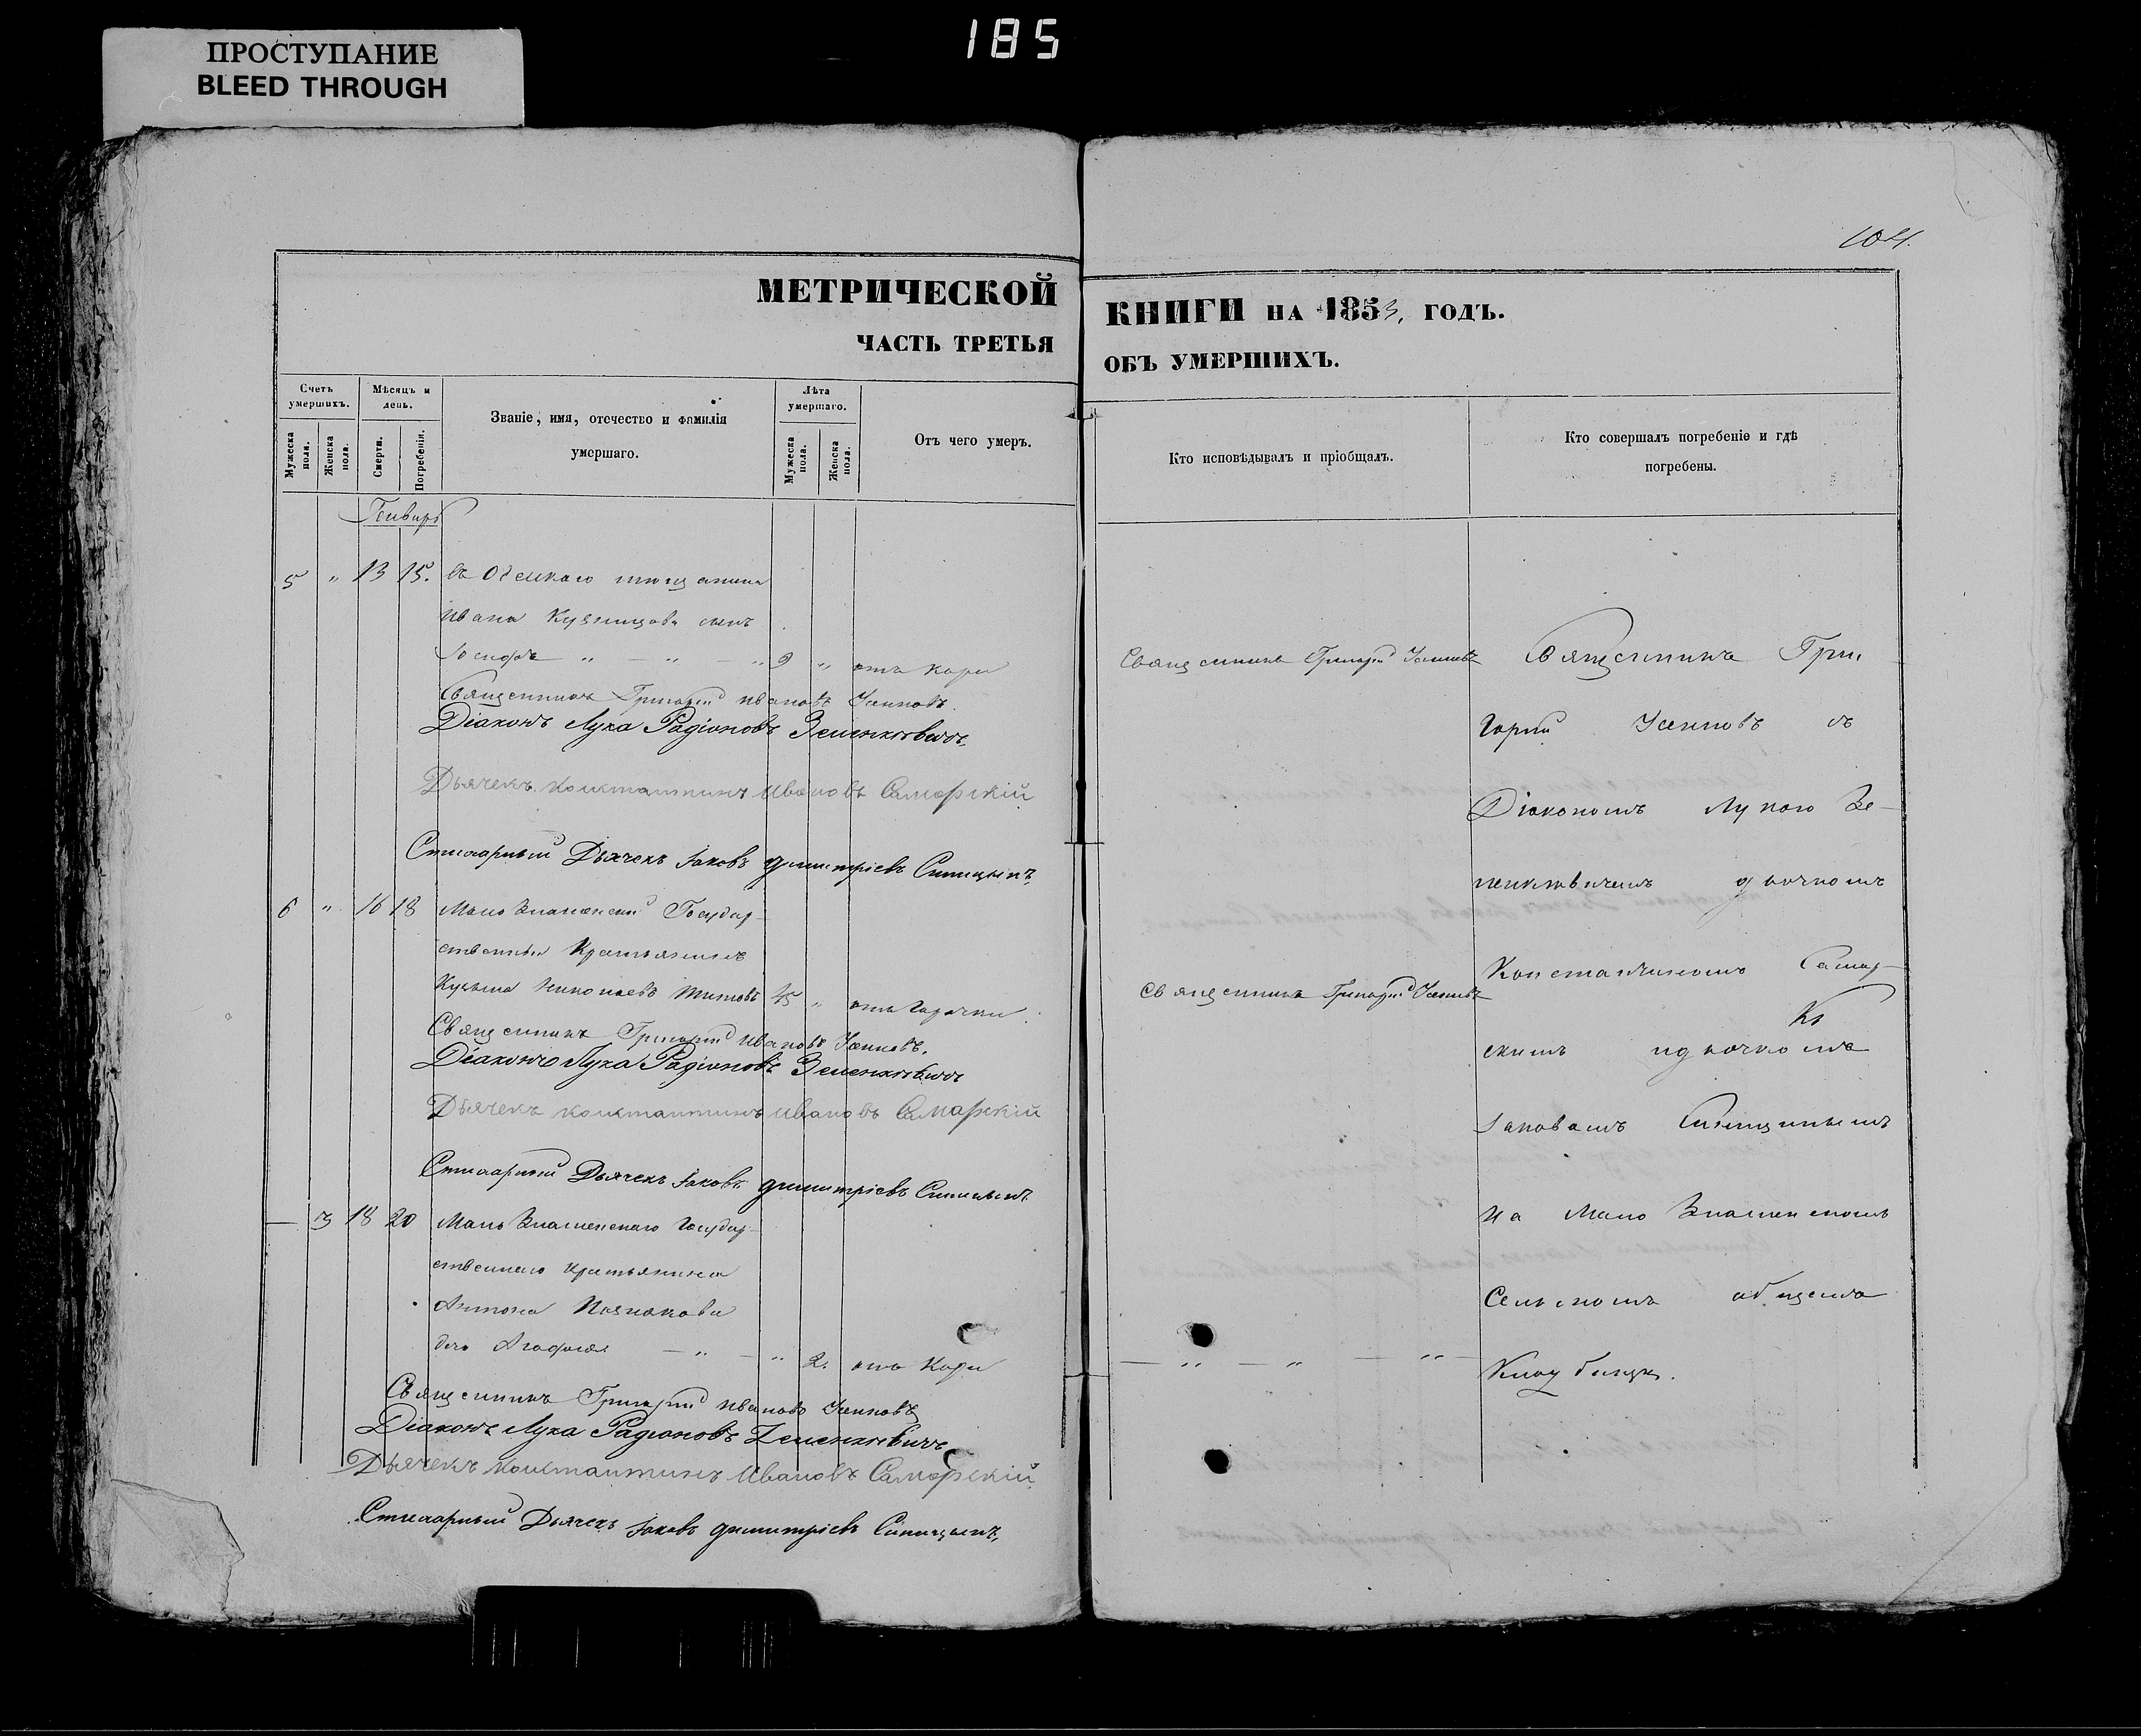 185
ПРОСТУПАНИЕ
BLEED THROUGH
104.
МЕТРИЧЕСКОЙ
ЧАСТЬ ТРЕТЬЯ
КНИГИ НА 1853, ГОДЪ.
ОБЪ УМЕРШИХЪ.
Счетъ умершихъ.
Мужеска пола.
Женска пола.
Мѣсяцъ и день.
Смерти.
Погребенія.
Званіе, имя, отечество и фамилія умершаго.
Лѣта умершаго.
Мужеска пола.
Женска пола.
Отъ чего умеръ.
Кто исповѣдывалъ и пріобщалъ.
Кто совершалъ погребеніе и гдѣ погребены.
Генварь
5 " 13 15.
Ивана Кузнецова сынъ
" — " — " 9 " отъ кори
Священникъ Григорій Ивановъ
Діаконъ Лука Радіоновъ Зеленкевичъ
Дьячекъ Константинъ Ивановъ Самарскій
Стихарный Дьячекъ Іаковъ Димитріевъ Синицынъ
6 " 16 18 Мало Знаменскій Государ-
ственный Крестьянинъ
Кузьма Николаевъ Титовъ 45 " отъ Горячки
Священникъ Григорій Ивановъ
Діаконъ Лука Радіоновъ Зеленкевичъ
Дьячекъ Константинъ Ивановъ Самарскій
Стихарный Дьячекъ Іаковъ Димитріевъ Синицынъ
— 3 18 20 Мало Знаменскаго Государ-
ственнаго Крестьянина
Антона Познякова
дочь Агафія — " — " 2. отъ Кори
Священникъ Григорій Ивановъ
Діаконъ Лука Радіоновъ Зеленкевичъ
Дьячекъ Константинъ Ивановъ Самарскій
Стихарный Дьячекъ Іаковъ Димитріевъ Синицынъ
Священникъ Григорій
Священникъ Григорій
— " — " — " —
Священникъ Гри
горій съ
Діакономъ Лукою Зе-
ленкевичемъ дьячкомъ
Константиномъ Самар-
скимъ и дьячкомъ
Іаковомъ Синицынымъ
на Мало Знаменскомъ
Сельскомъ общемъ
Кладбищѣ.